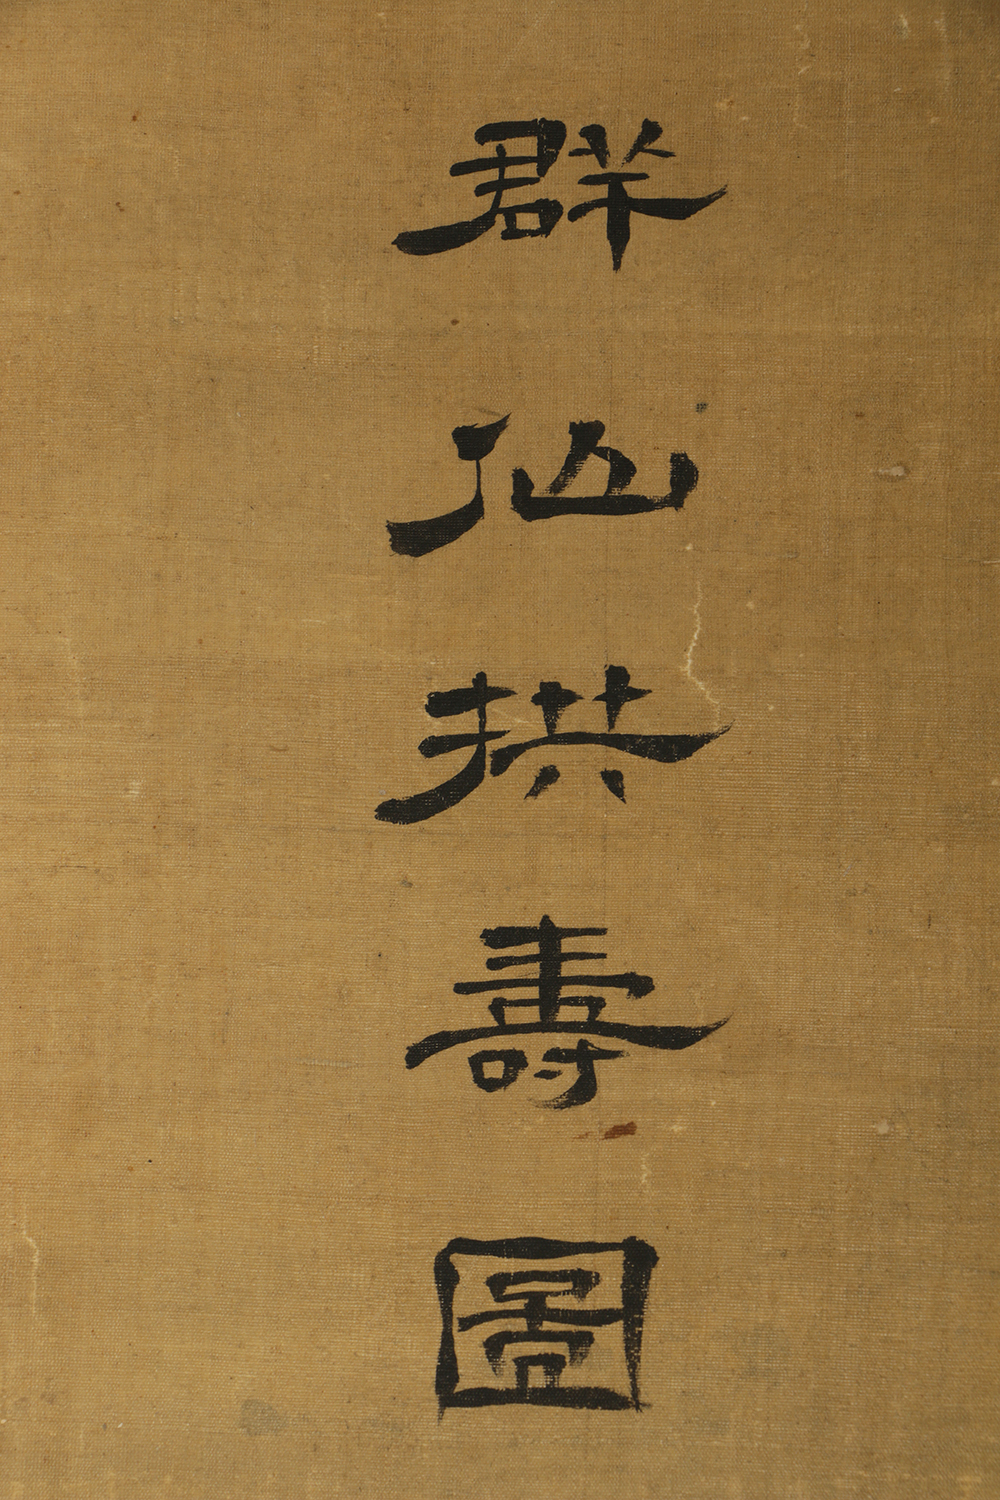 群仙拱壽圖